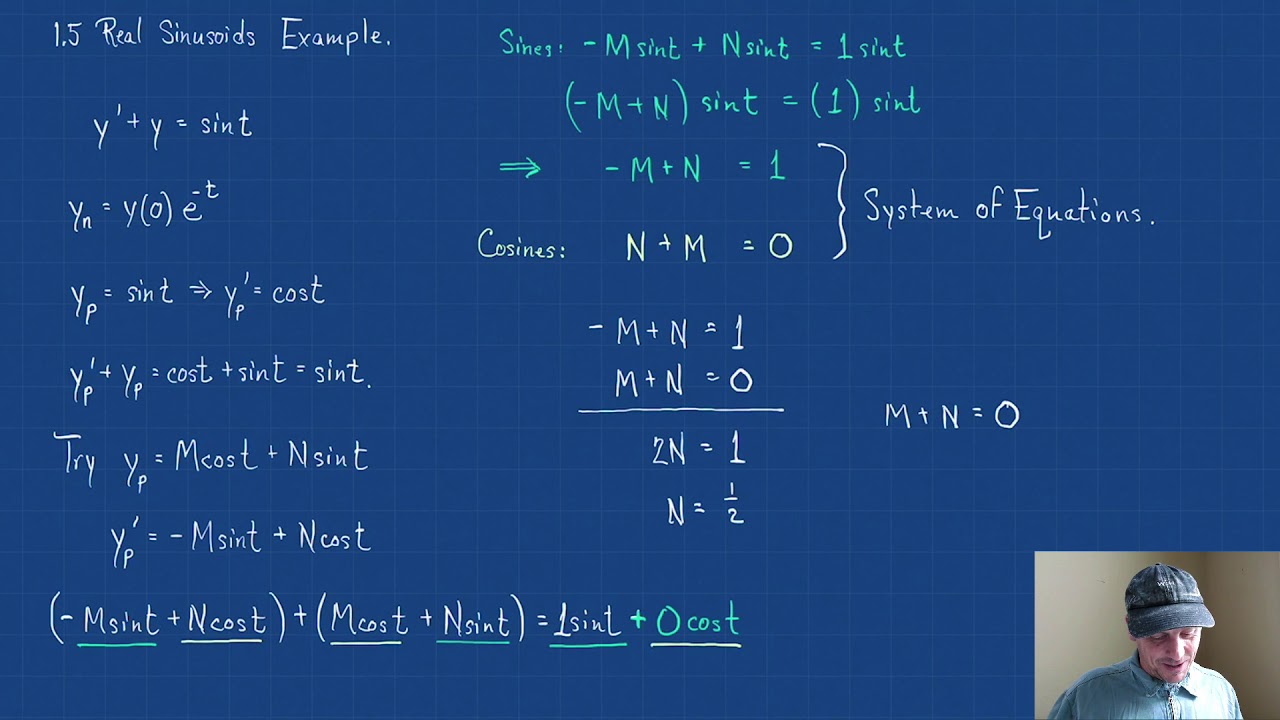 1.5 Real Sinusoids Example.
y' + y = sint
yₙ = y(0) e⁻ᵗ
yₚ = sint ⇒ yₚ' = cost
yₚ' + yₚ = cost + sint = sint.
Try yₚ = Mcost + Nsint
yₚ' = - Msint + Ncost
(- Msint + Ncost) + (Mcost + Nsint) = 1sint + 0cost
Sines: - Msint + Nsint = 1sint
(- M + N) sint = (1) sint
⇒ - M + N = 1
Cosines: N + M = 0
} System of Equations.
- M + N = 1
M + N = 0
2N = 1
N = 1/2
M + N = 0